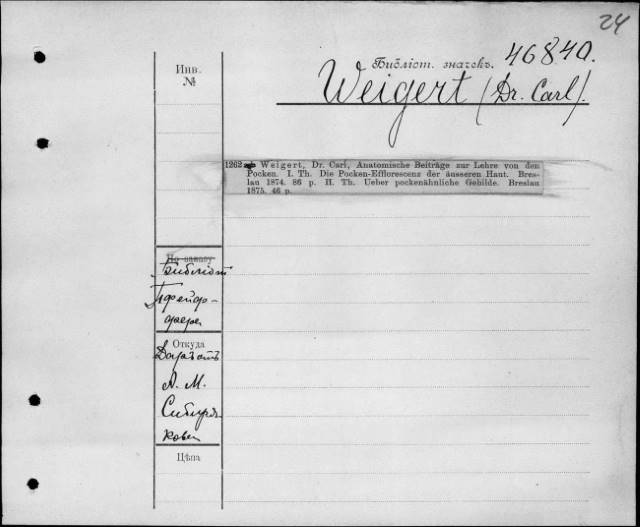 24
Инв.
№
Библіот. значекъ. 46840.
Weigert (Dr. Carl).
1262 Weigert, Dr. Carl, Anatomische Beiträge zur Lehre von den
Pocken. I. Th. Die Pocken-Efflorescenz der äusseren Haut. Bres-
lau 1874. 86 p. II. Th. Ueber pockenähnliche Gebilde. Breslau
1875. 46 p.
По заказу
Библіот
Пфейф-
фера
Откуда
Даръ отъ
А. М.
Сибиря-
кова
Цѣна